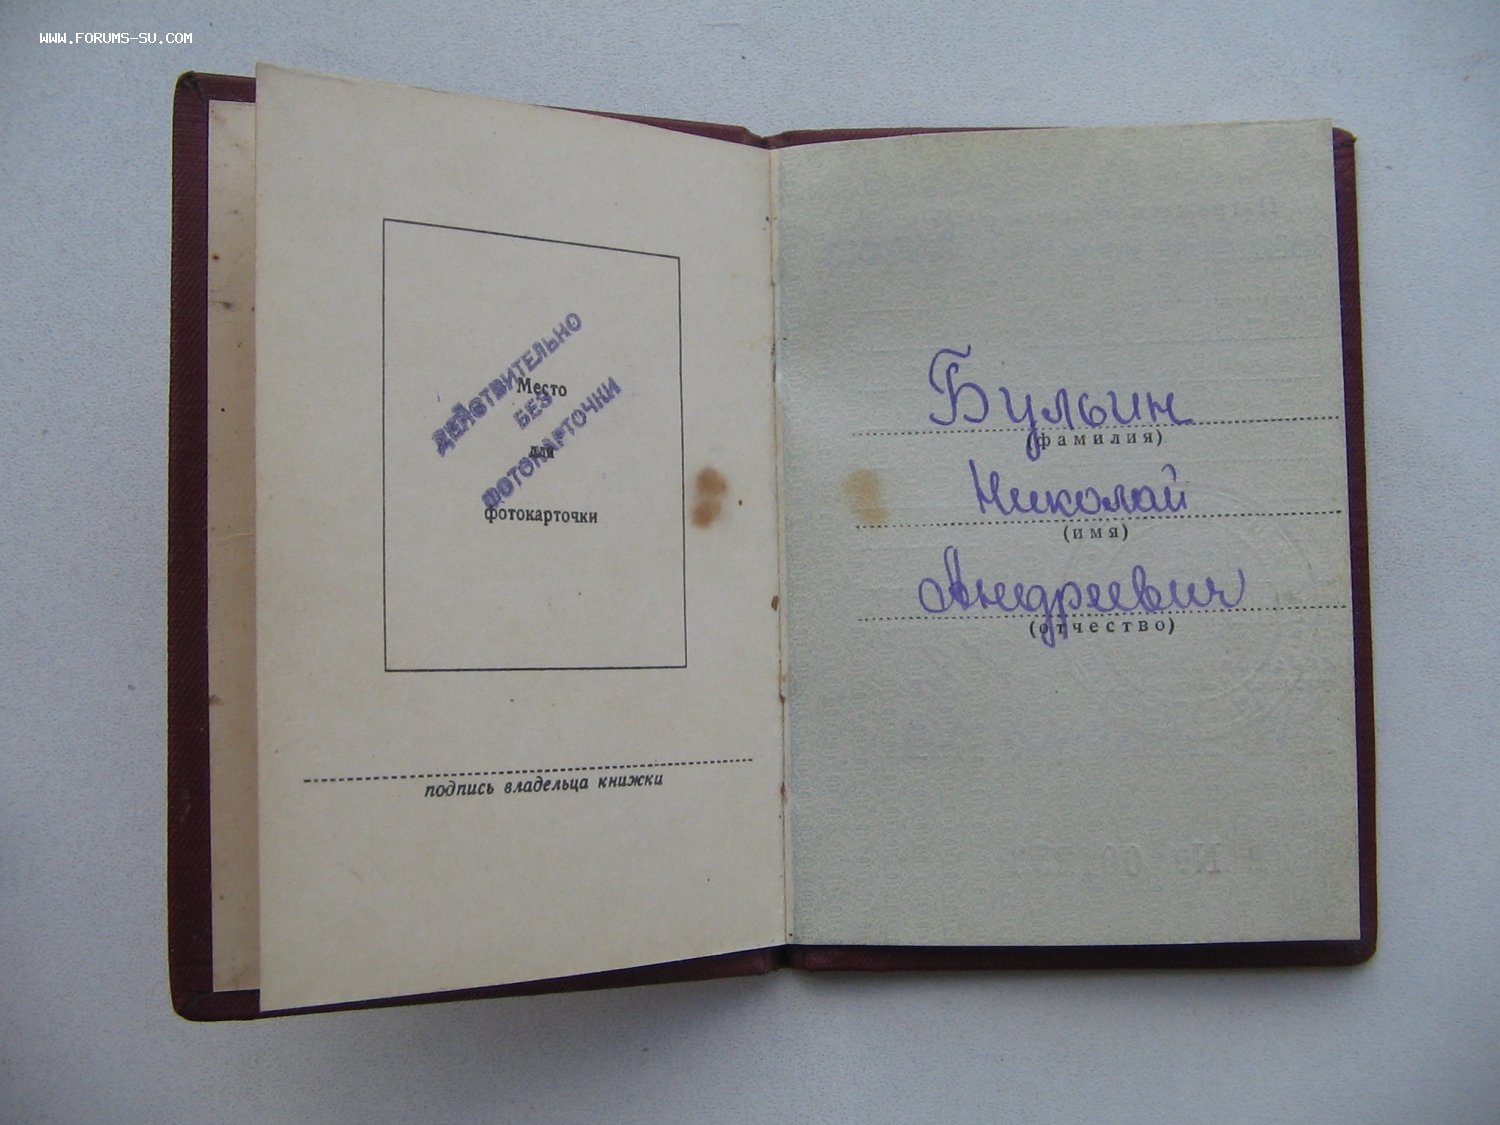 WWW.FORUMS-SU.COM
ДЕЙСТВИТЕЛЬНО
БЕЗ
ФОТОКАРТОЧКИ
Место
для
фотокарточки
подпись владельца книжки
Бульин
(фамилия)
Николай
(имя)
Андреевич
(отчество)